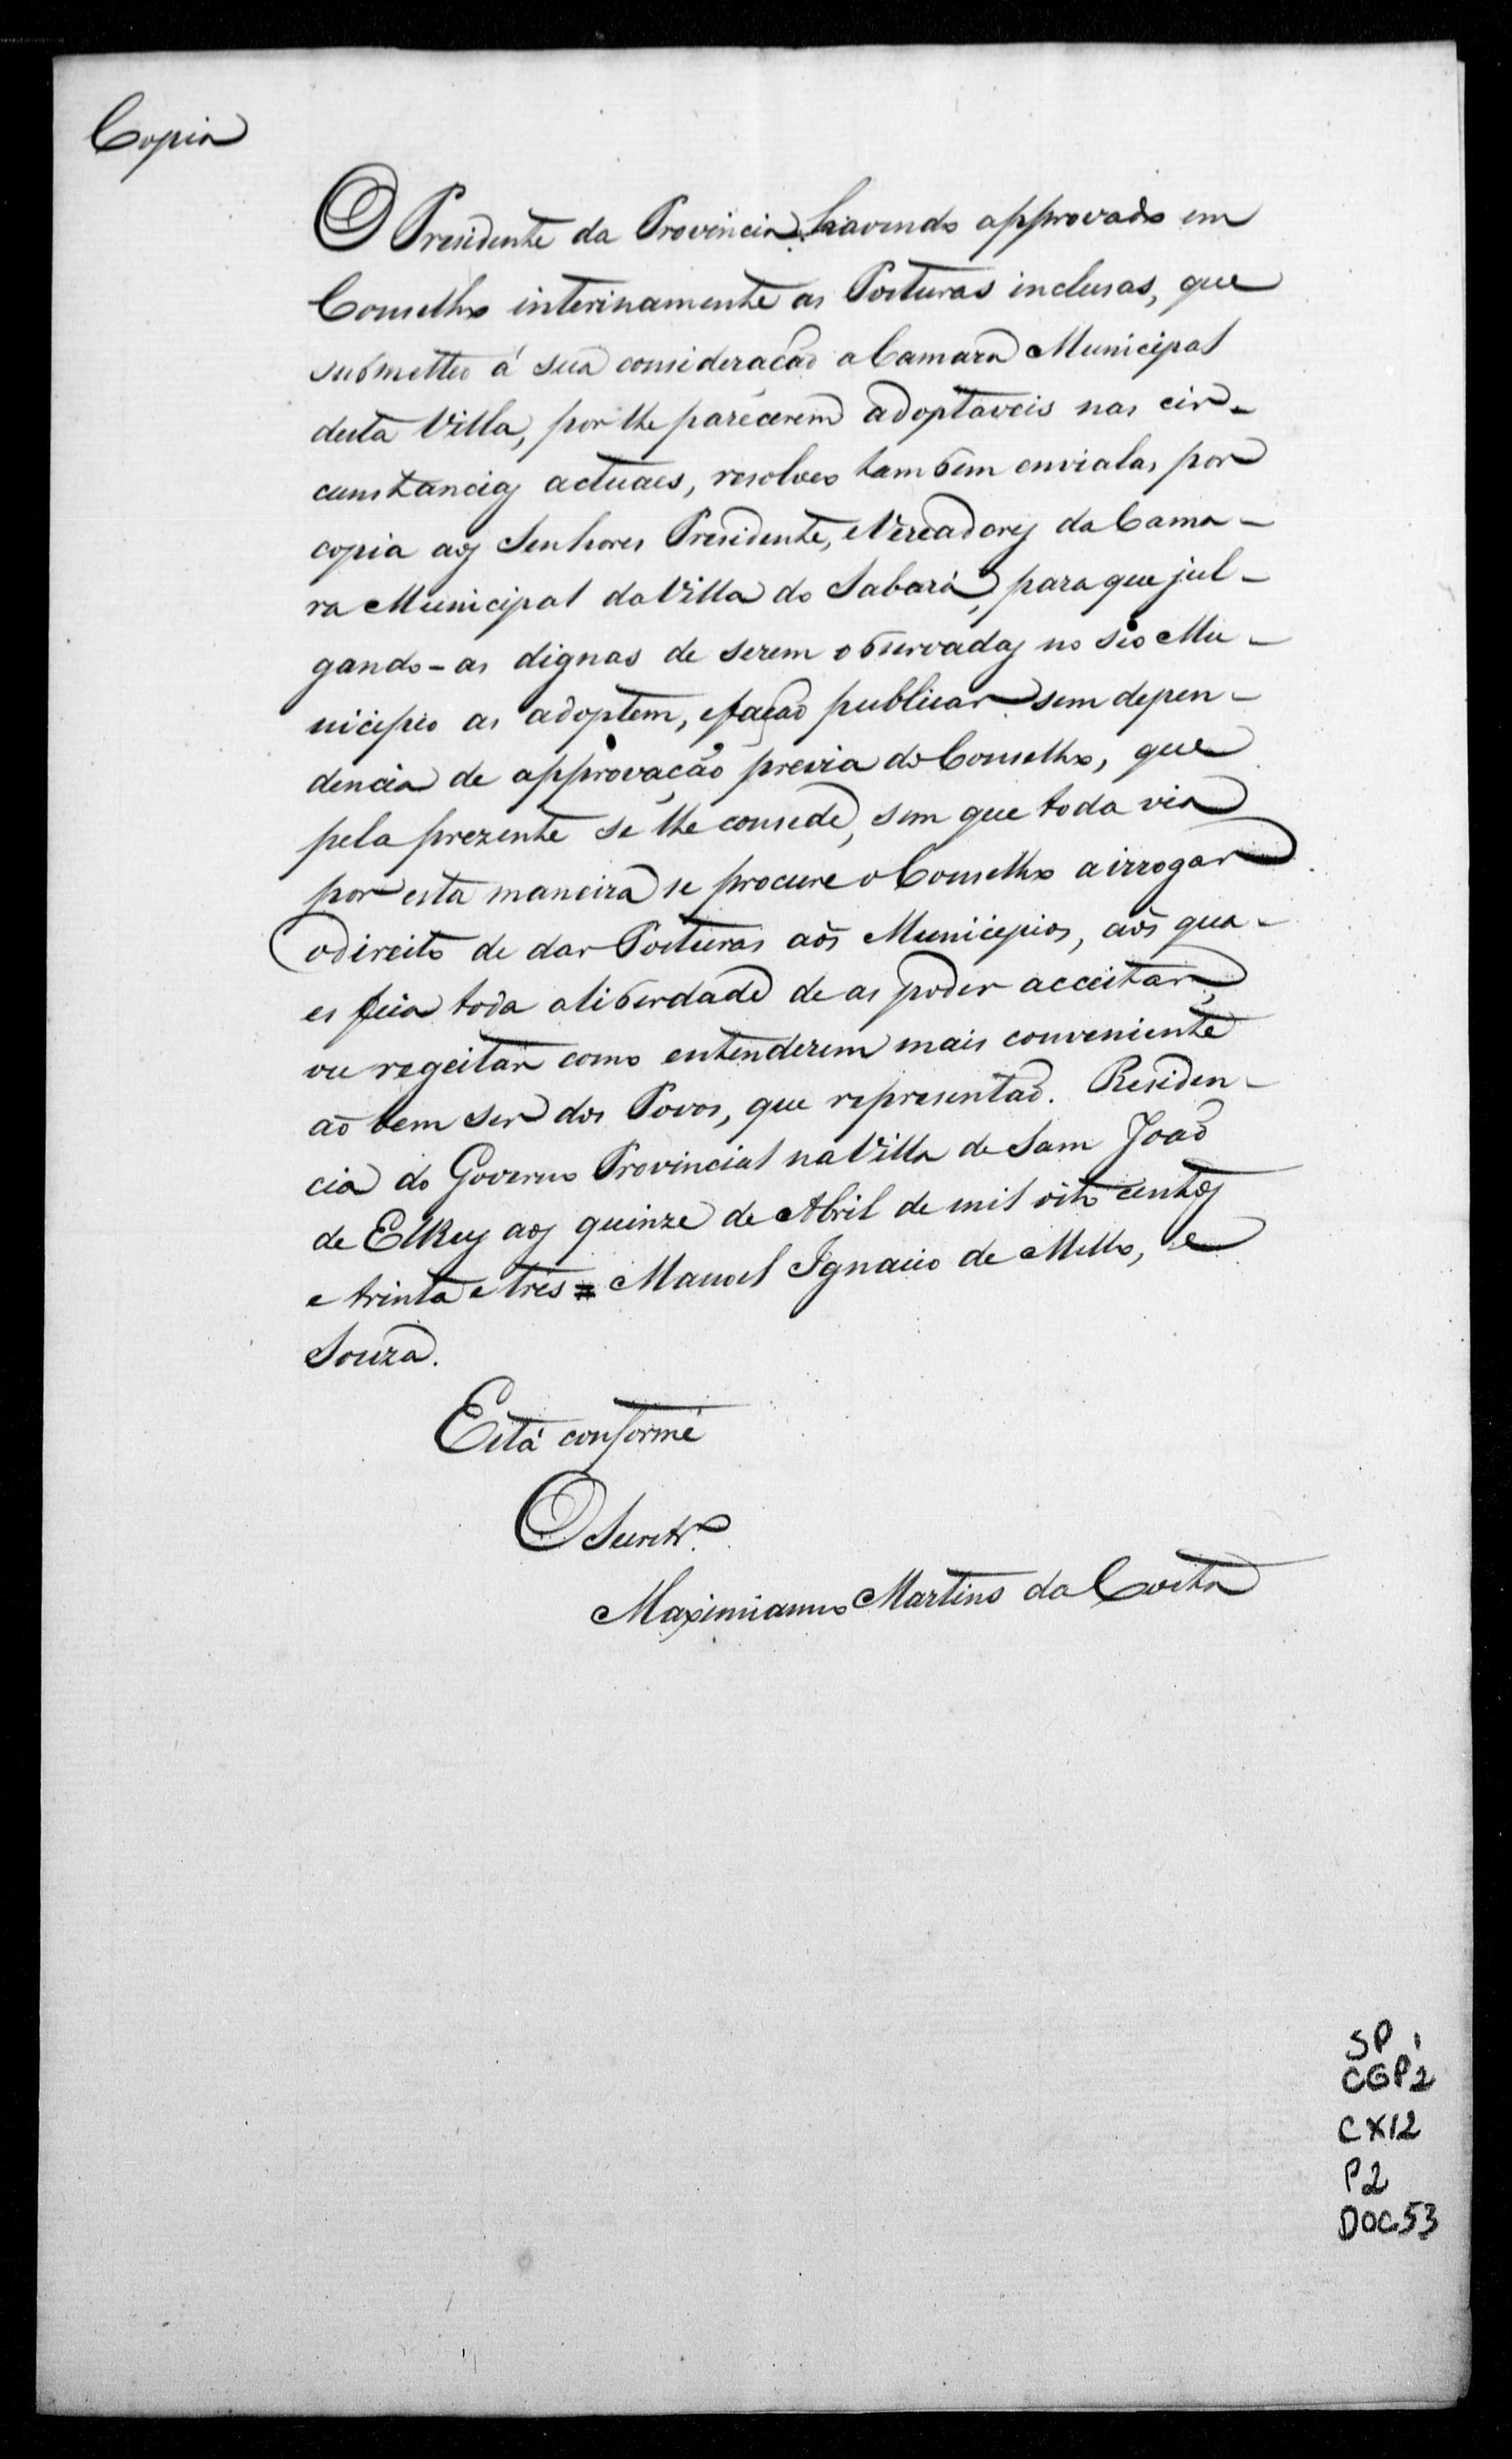 Copia
O Presidente da Provincia havendo approvado em
Conselho interinamente as Posturas inclusas, que
submetteo á sua consideracão a Camara Municipal
desta Villa, por lhe parecerem adoptaveis nas cir-
cunstancias actuaes, resolveo tambem envialas por
copia aos Senhores Presidente, e Vereadores da Cama-
ra Municipal da Villa do Sabará, para que jul-
gando-as dignas de serem observadas no seo Mu-
nicipio as adoptem, e fação publicar sem depen-
dencia de approvação previa do Conselho, que
pela prezente se lhe consede, sem que toda via
por esta maneira se procure o Conselho a irrogar
o direito de dar Posturas aos Municipios, aos qua-
es fica toda a liberdade de as poder acceitar,
ou regeitar como entenderem mais conveniente
ao bem ser dos Povos, que representão. Residen-
cia do Governo Provincial na Villa de Sam João
de ElRey aos quinze de Abril de mil oito centos
e trinta e tres = Manoel Ignacio de Mello, e
Souza.
Está conforme
O Secretr.º
Maximianno Martins da Costa
SP
CGP2
CX12
P2
DOC53